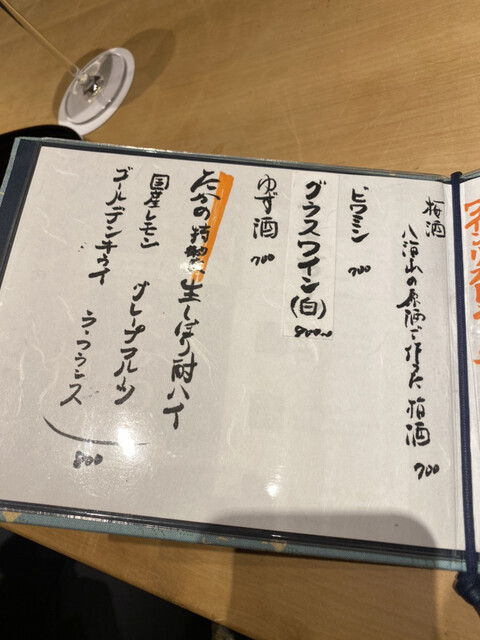 梅酒
八海山の原酒で作った梅酒 700
ビワミン 700
グラスワイン(白) 800
ゆず酒 700
たかの特製 生しぼり酎ハイ
国産レモン グレープフルーツ
ゴールデンキウイ ラ・フランス
800